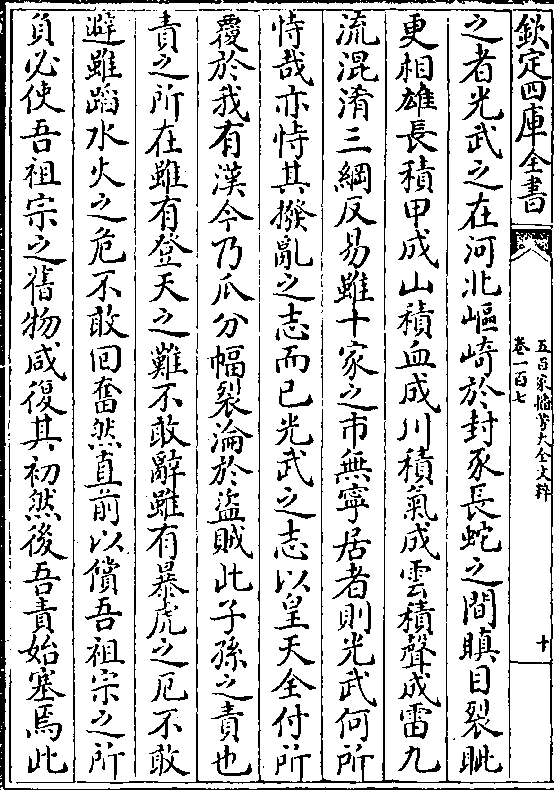 欽定四庫全書
五百家播芳大全文粹
卷一百七
十
之者光武之在河北嶇崎於封豕長蛇之間瞋目裂眦
更相雄長積甲成山積血成川積氣成雲積聲成雷九
流混淆三綱反易雖十家之市無寧居者則光武何所
恃哉亦恃其撥亂之志而已光武之志以皇天全付所
覆於我有漢今乃瓜分幅裂淪於盜賊此子孫之責也
責之所在雖有登天之難不敢辭雖有暴虎之厄不敢
避雖蹈水火之危不敢回奮然直前以償吾祖宗之所
負必使吾祖宗之舊物咸復其初然後吾責始塞焉此